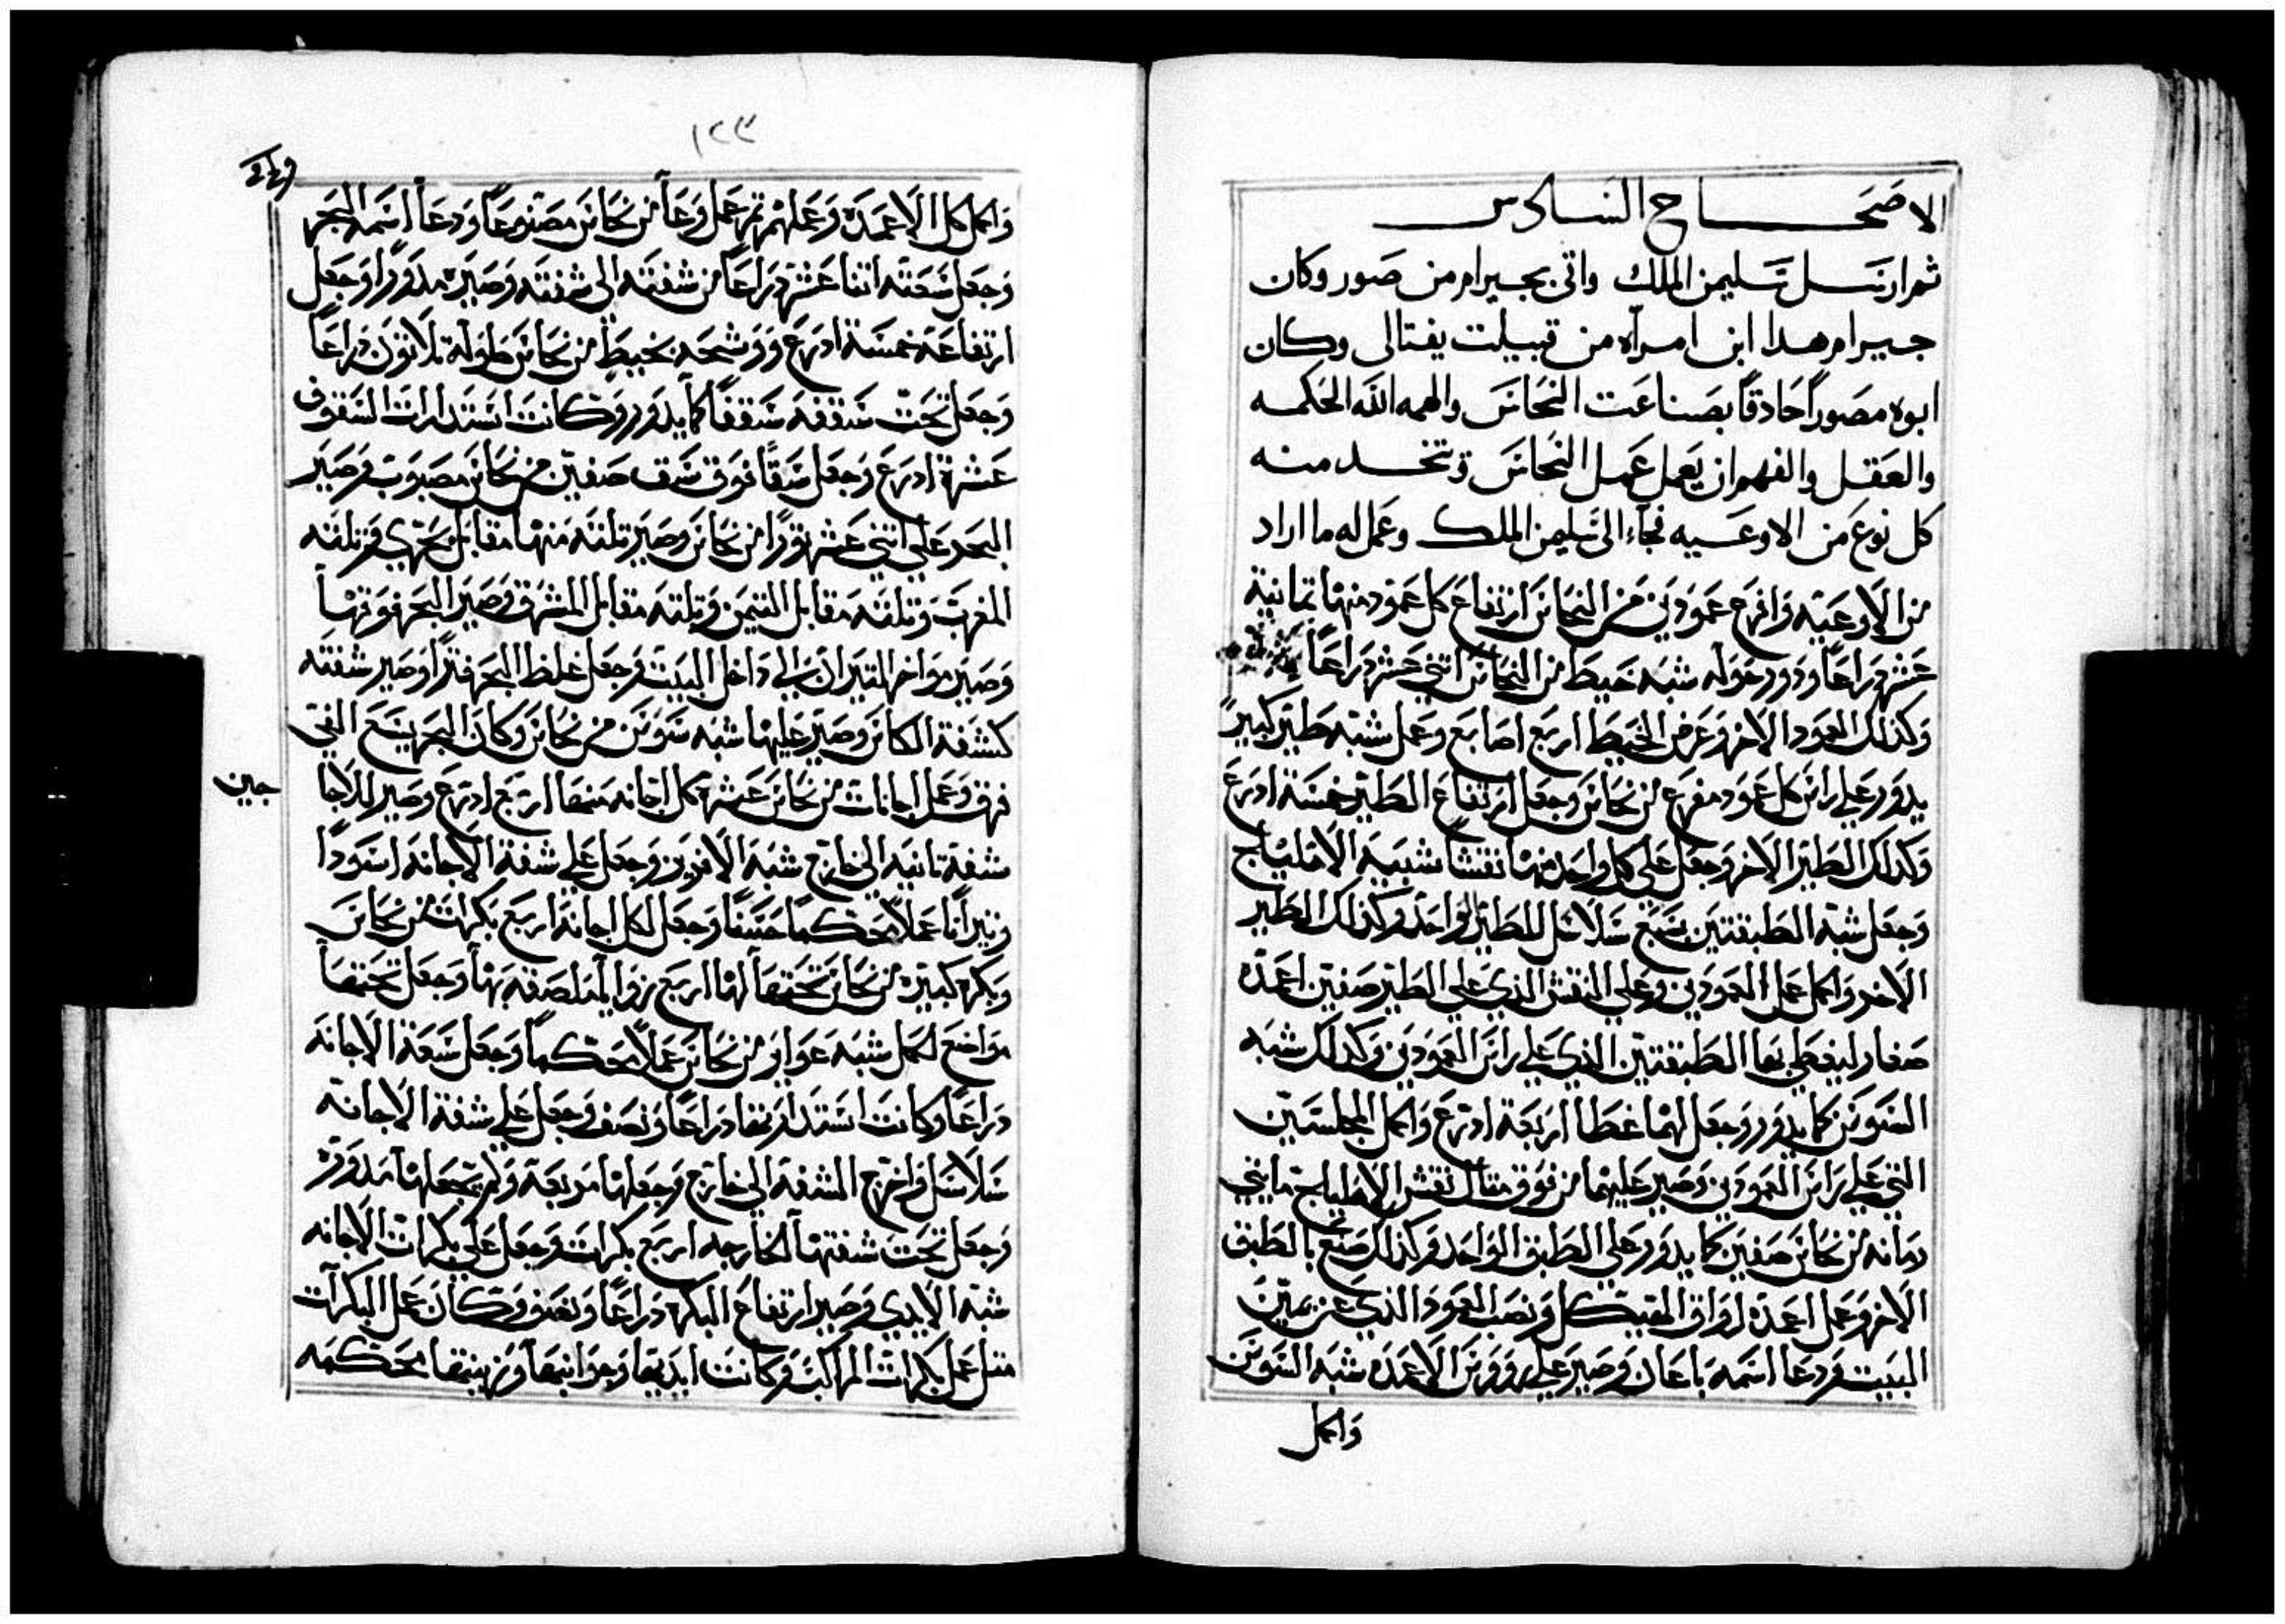 الاصحاح السادس
ثم ارسل سليمن الملك واتى بجيرام من صور وكان
جيرام هدا ابن امراه من قبيلت يفتالى وكان
ابوه مصوراً حادقاً بصناعت النحاس والهمه الله الحكمه
والعقل والفهم ان يعمل عمل النحاس وتتخد منه
كل نوع من الاوعيه فجاء الى سليمن الملك وعمل له ما اراد
من الاوعيه وافرع عمودين من النحاس ارتفاع كل عمود منها تمانية
عشر دراعاً ودور حوله شبه خيط من النحاس اتني عشر دراعاً
وكذلك العمود الاخر وعرض الخيط اربع اصابع وعمل شبه طير كبير
يدور علي راس كل عمود مفرع من نحاس وجعل ارتفاع الطير خمسة ادرع
وكدلك الطير الاخر وجعل علي كل واحد منها نقشاً شبيه الاهليلج
وجعل شبه الطبقتين سبع سلاسل للطير الواحد وكذلك الطير
الاخر واكمل عمل العمودين وعلي النقش الذي علي الطير صفين اعمدة
صغار ليغطي بها الطبقتين الذي علي راس العمودين وكدلك شبه
السوسن كما يدور وجعل لهما غطاا اربعة ادرع واكمل المجلستين
التي علي راس العمودين وصير عليهما من فوق مقابل نقش الاهليلج مايتي
رمانه من نحاس صفين كما يدور علي الطبق الواحد وكذلك صنع بالطبق
الاخر وعمل اعمدة ارواق الهيكل ونصب العمود الذي عن يمين
البيت ودعا اسمه باعان وصير علي رووس الاعمده شبه السوسن
واكمل
١٢٣
واكمل كل الاعمده وعملهم تم عمل وعاً من نحاس مصنوعاً ودعا اسمه البحر
وجعل سعته اتنا عشر دراعاً من شفته الى شفته وصيره مدوراً وجعل
ارتفاعه خمسة ادرع ووشحه بخيط من نحاس طوله تلاتون دراعاً
وجعل تحت سقفه سقفاً كما يدور وكانت استدارات السقوف
عشرة ادرع وجعل سقفاً فوق سقف صفين من نحاس مصبوب وصير
البحر علي اتني عشر تورًا من نحاس وصير تلته منها مقابل بحري وتلته
المغرب وتلته مقابل التيمن وتلته مقابل المشرق وصير البحر فوقها
وصير مواخر التيران الي داخل البيت وجعل غلظ البحر فتراً وصير شفته
كشفة الكاس وصير عليها شبه سوسن من نحاس وكان البحر يسع الفي
فرق وعمل اجانات من نحاس عشرة كل اجانه منها اربع ادرع وصير للاجا
شفة تانيه الى خارج شبه الاخرين وجعل علي شفة الاجانة اسوداً
وتيراناً عملاً محكماً حنيفاً وجعل لكل اجانة اربع بكرات من نحاس
وبكره كبيره من نحاس تحتها لها اربع زوايا ملصقه بها وجعل تحتها
مواضع لحمل شبه عوابر من نحاس عملاً محكماً وجعل سعة الاجانه
دراعاً وكانت استدارتها دراعاً ونصف وجعل علي شفة الاجانه
سلاسل واخرج الشفة الى خارج وجعلها مربعة ولم تجعلها مدورة
وجعل تحت شفتها الخارجه اربع بكرات وجعل علي بكرات الاجانه
شبه الايدي وصير ارتفاع البكره دراعاً ونصف وكان عمل البكرات
متل عمل بكرات المراكب وكانت ايديها وجوانبها وزينتها محكمه